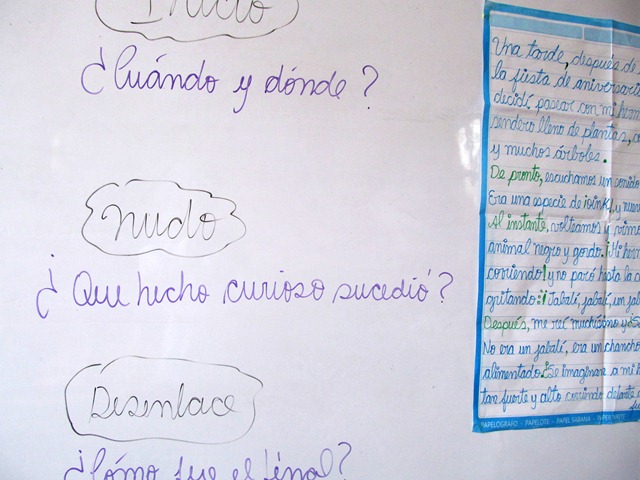 Inicio
¿Cuándo y dónde?
Nudo
¿Que hecho curioso sucedió?
Desenlace
¿Cómo fue el final?
Una tarde, después de
la fiesta de aniversario
decidí pasear con mi
sendero lleno de plantas,
y muchos árboles.
De pronto, escuchamos un sonido
Era una especie de ¡oink! y
Al instante, volteamos y vimos
animal negro y gordo. ¡Mi
corriendo! y no paró hasta la
gritando: ¡Jabalí, jabalí, un
Después, me reí muchísimo y
No era un jabalí, era un chancho
alimentado. ¡Se imaginan a mi
tan fuerte y alto corriendo delante
PAPELOGRAFO - PAPELOTE - PAPEL SABANA -